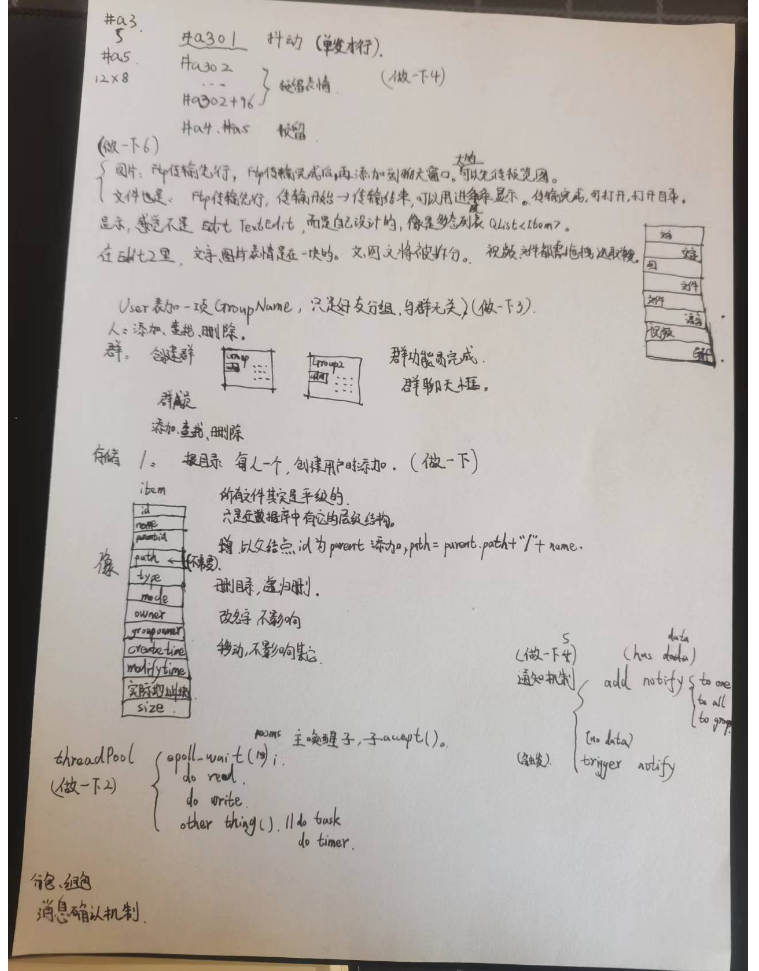 #a3.
5
#a5.
12×8
#a301 抖动 (单发本行).
#a302
...
#a302+96
预留表情
(做一下4)
#a4. #a5 预留
(做一下6)
图片: ftp传输先行, ftp传输完成后,再添加到聊天窗口。大的可以先传预览图。
文件也是: ftp传输先行, 传输开始→传输结束,可以用进度条显示。传输完成,可打开,打开目录。
显示, 感觉不是 Edit TextEdit, 而是自己设计的, 像是多态列表 QList<Item>。
在Edit2里, 文字、图片表情是在一块的。文图文将被拆分。视频、文件都需
文字
图
文件
文件
语音
视频
User表加一项GroupName, 只是好友分组,与群无关)(做一下3).
人:添加、查找、删除。
群: 创建群
Group
Group2
群功能完成.
群聊天框。
群成员
添加、查找、删除
存储 1. 根目录 每人一个,创建用户时添加. (做一下)
item
像
id
name
parentid
path ← (不需要).
type
mode
owner
groupowner
createtime
modifytime
实际地址
size
所有文件其实是平级的.
只是在数据库中有它的层级结构。
增,以父结点id为parent添加, path = parent.path+"/"+ name.
删目录, 递归删.
改名字 不影响
移动,不影响其它.
5
(做一下4)
通知机制
data
(has data)
add notify
to one
to all
to group
(no data)
(触发).
trigger notify
threadPool
(做一下2)
epoll_wait(10);
主唤醒子,子accept()。
do read.
do write.
other thing(). //do task
do timer.
分包、组包
消息确认机制.